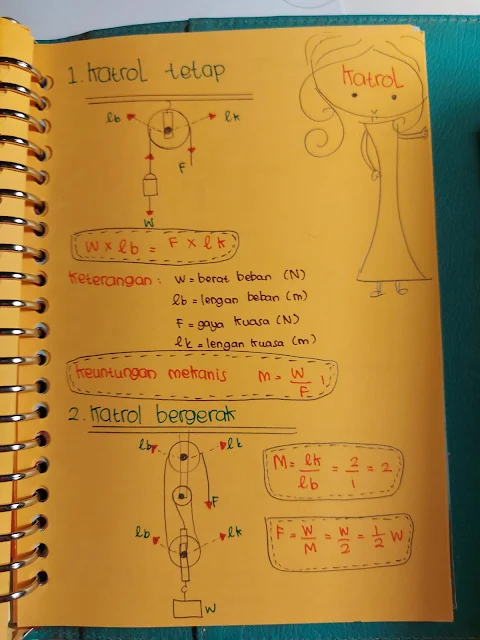 Katrol
1. Katrol tetap
lb lk
F
W
W x lb = F x lk
Keterangan : W = berat beban (N)
lb = lengan beban (m)
F = gaya kuasa (N)
lk = lengan kuasa (m)
Keuntungan mekanis M = W/F
2. Katrol bergerak
lb lk
F
lb lk
W
M = lk/lb = 2/1 = 2
F = W/M = W/2 = 1/2 W